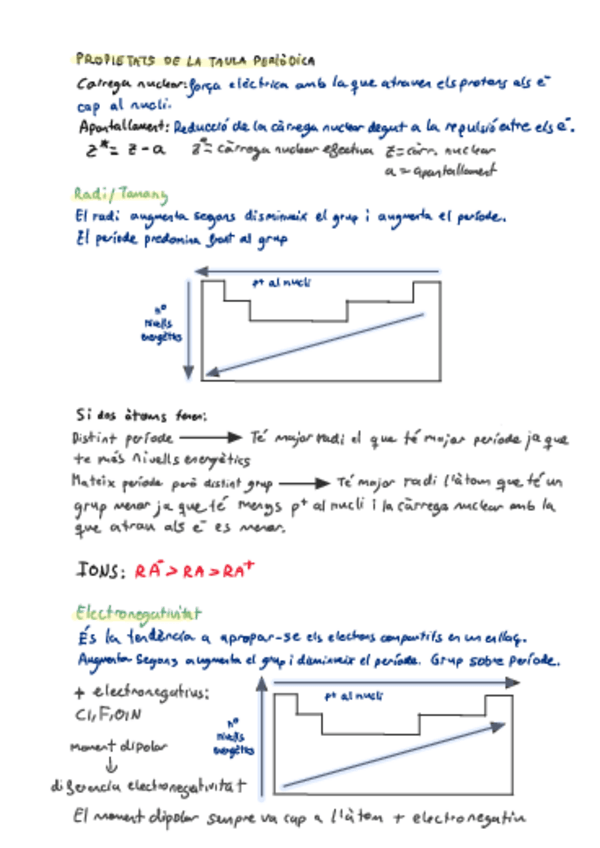 PROPIETATS DE LA TAULA PERIÒDICA
Càrrega nuclear: força elèctrica amb la que atrauen els protons als e⁻
cap al nucli.
Apantallament: Reducció de la càrrega nuclear degut a la repulsió entre els e⁻.
Z* = Z - a Z* = càrrega nuclear efectiva Z = càrr. nuclear
a = apantallament
Radi/Tamany
El radi augmenta segons disminueix el grup i augmenta el període.
El període predomina front al grup
p⁺ al nucli
nº
nivells
energètics
Si dos àtoms tenen:
Distint període → Té major radi el que té major període ja que
te més nivells energètics
Mateix període però distint grup → Té major radi l'àtom que té un
grup menor ja que té menys p⁺ al nucli i la càrrega nuclear amb la
que atrau als e⁻ es menor.
IONS: RA⁻ > RA > RA⁺
Electronegativitat
És la tendència a apropar-se els electrons compartits en un enllaç.
Augmenta segons augmenta el grup i disminueix el període. Grup sobre període.
+ electronegatius:
Cl, F, O, N
p⁺ al nucli
nº
nivells
energètics
moment dipolar
↓
diferencia electronegativitat
El moment dipolar sempre va cap a l'àtom + electronegatiu